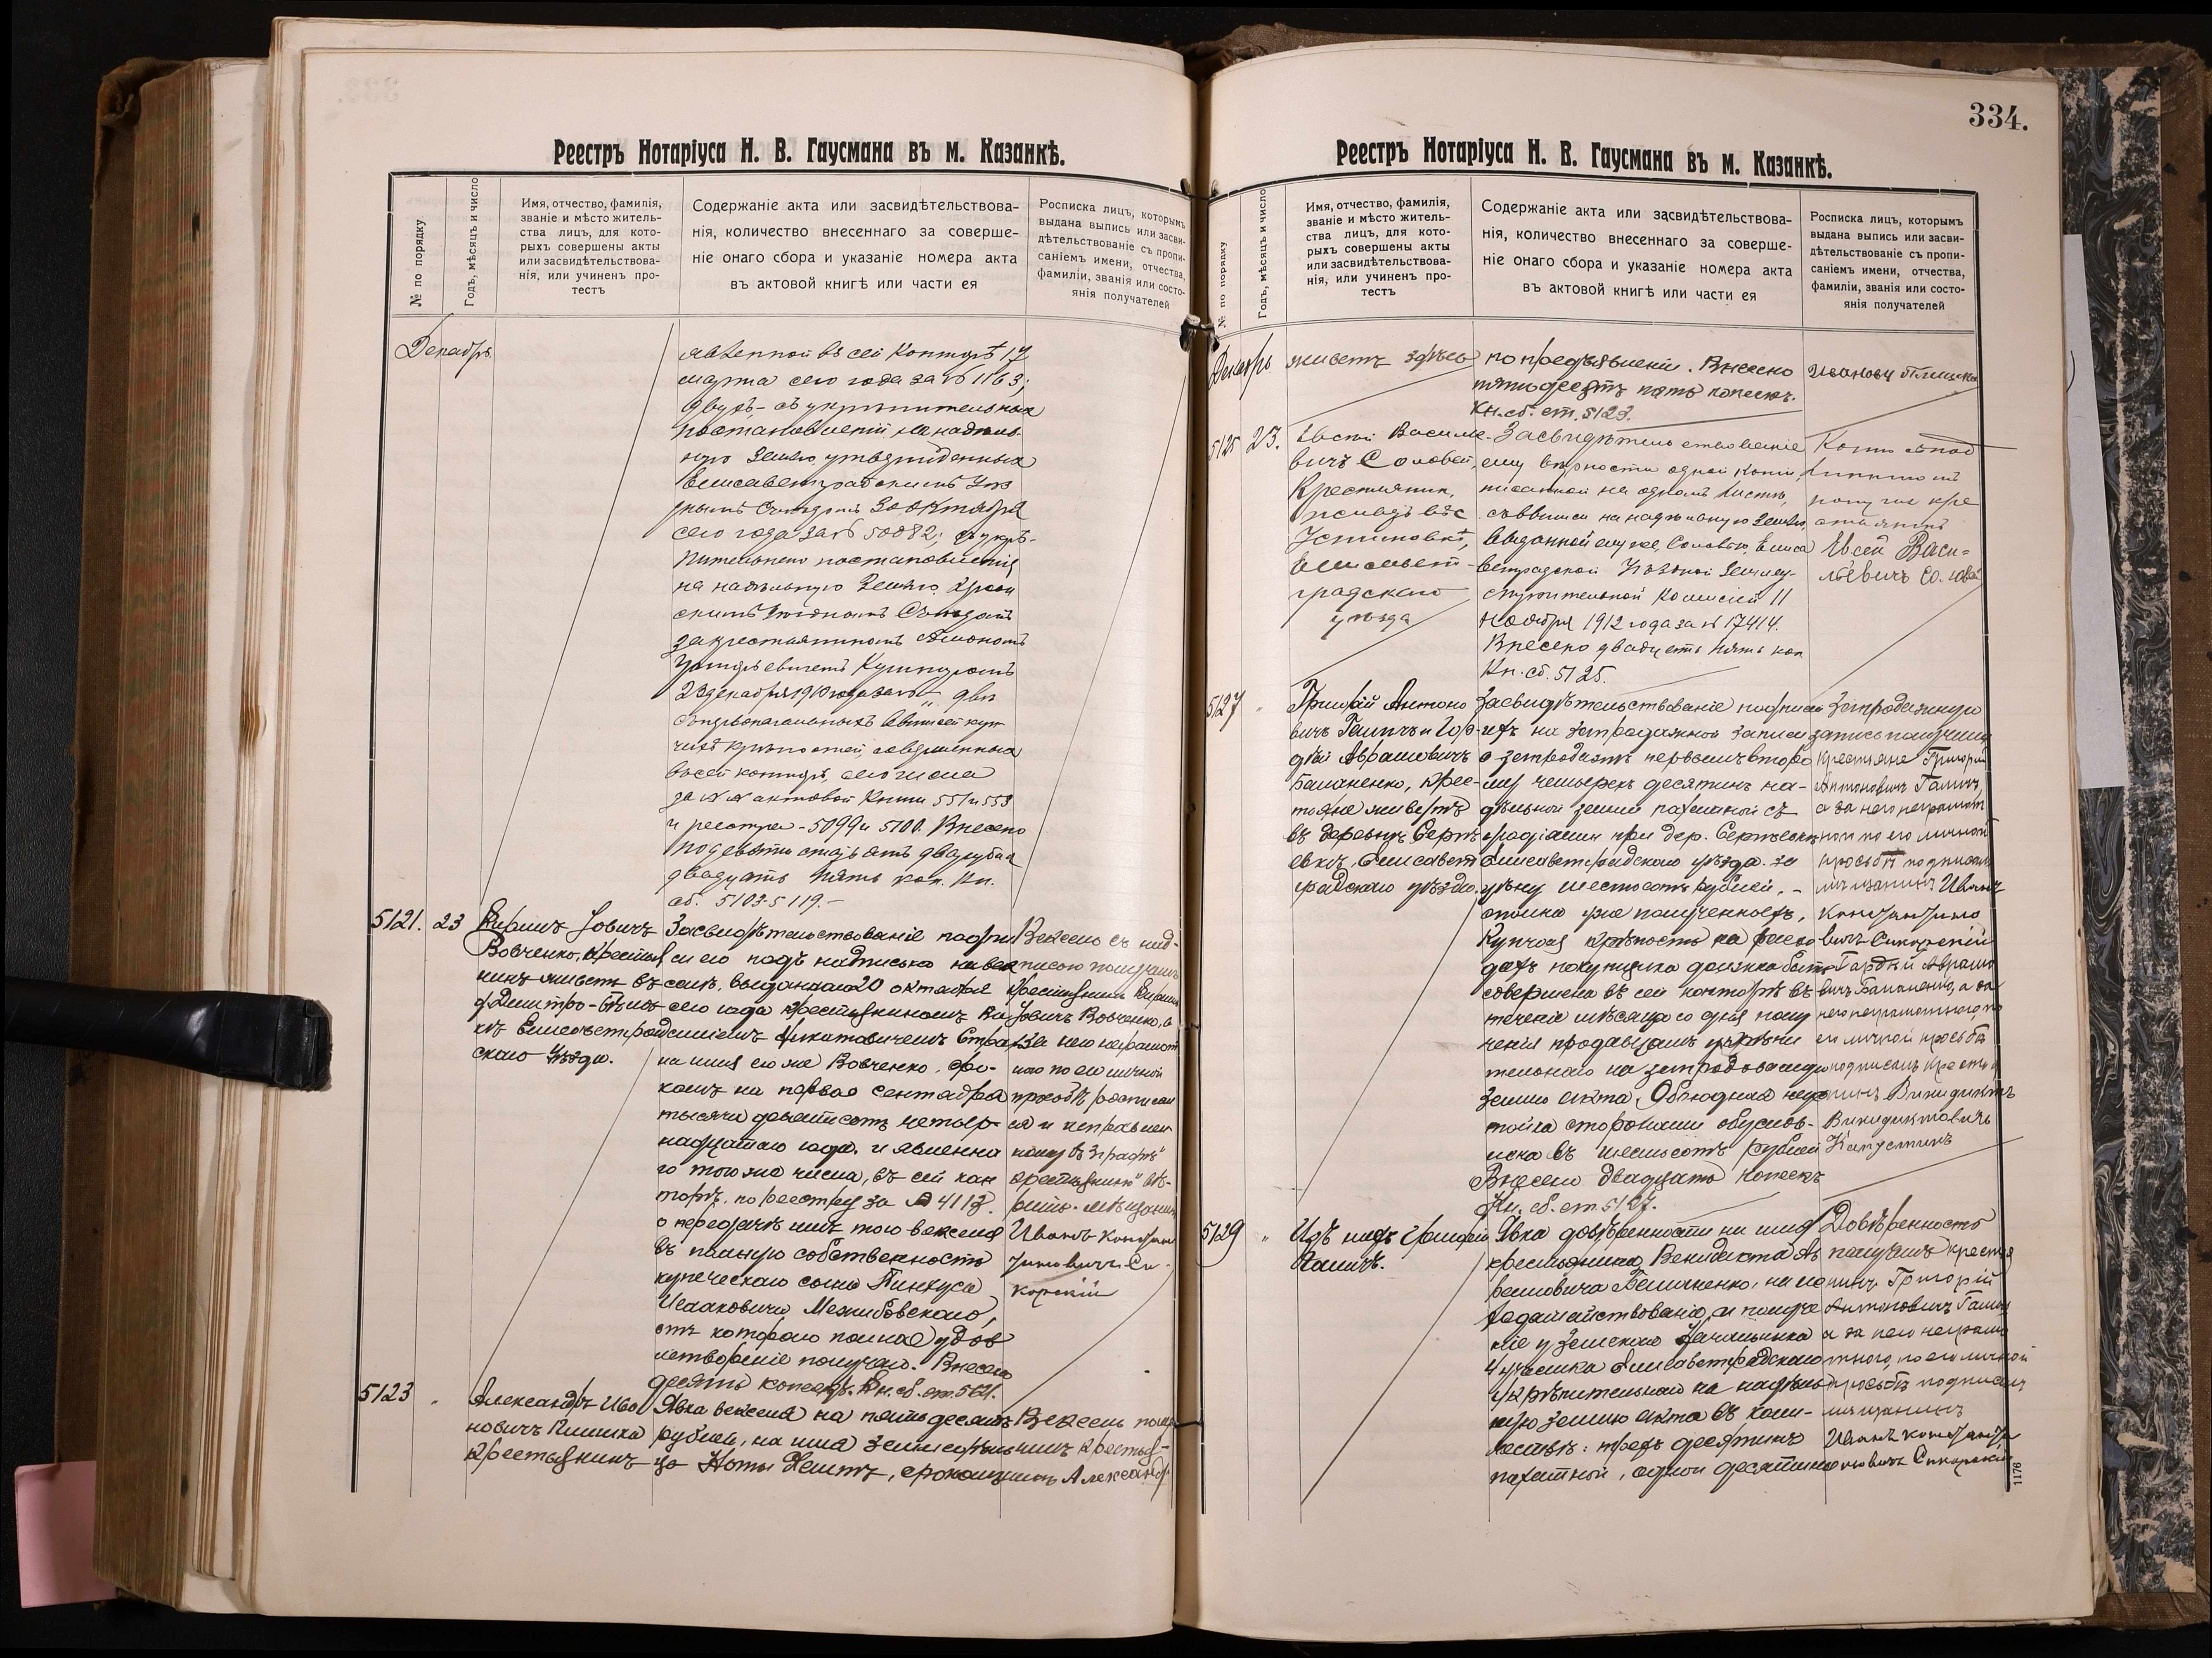 Реестръ Нотаріуса Н. В. Гаусмана въ м. Казанкѣ.
№ по порядку
Годъ, мѣсяцъ и число
Имя, отчество, фамилія,
званіе и мѣсто житель-
ства лицъ, для кото-
рыхъ совершены акты
или засвидѣтельствова-
нія, или учиненъ про-
тестъ
Содержаніе акта или засвидѣтельствова-
нія, количество внесеннаго за соверше-
ніе онаго сбора и указаніе номера акта
въ актовой книгѣ или части ея
Росписка лицъ, которымъ
выдана выпись или засви-
дѣтельствованіе съ пропи-
саніемъ имени, отчества,
фамиліи, званія или состо-
янія получателей
Декабрь
явленной въ сей Конторѣ 17
марта сего года за № 1163;
двухъ - съ укрѣпительныхъ
постановленій на надѣль-
ную Землю утвержденныхъ
Елисаветградскимъ Уѣз
днымъ Съѣздомъ 30 Октября
сего года за № 50082; съ укрѣ-
пительнаго постановленія
на надѣльную Землю
скимъ Уѣзднымъ Съѣздомъ
за крестьяниномъ
23 декабря 1910 года за № „ двѣ
съ первоначальныхъ выписей куп
чихъ крѣпостей, совершенныхъ
въ сей конторѣ, сего числа
за № № актовой Книги 551 и 553
и реестра - 5099 и 5100. Внесено
двадцать пять коп. Кн.
сб. 5103-5119.-
5121. 23
Іовичъ
Вовченко, крестья
нинъ живетъ въ
д. Дмитро-Бѣлов
кѣ Елисаветград
скаго Уѣзда.
Засвидѣтельствованіе подпи
си его подъ надписью на век
селѣ, выданномъ 20 октября
сего года крестьяниномъ
на имя его же Вовченко, сро-
комъ на первое сентября
тысяча девятьсотъ четыр-
надцатаго года. и явленна
го того же числа, въ сей кон
торѣ, по реестру за № 4113.
о передачѣ имъ того векселя
въ полную собственность
купеческаго сына Пинхуса
Исааковича Межибовскаго,
отъ котораго полное удов
летвореніе получаю. Внесено
десять копеекъ. Кн. сб. ст. 5121.
Вексель съ над-
писью получилъ
крестьянинъ
Іовичъ Вовченко, а
за него неграмот
наго по его личной
просьбѣ росписал
ся и исправлен
ному въ 3 графѣ
„крестьянинъ" вѣ-
рить. мѣщанинъ
Иванъ Констан
тиновичъ Си-
корскій
5123 „
Александръ Ива
новичъ Пишка
крестьянинъ
Явка векселя на пятьдесятъ
рублей, на имя Земледѣль
ца Ноты Хешт, срокомъ
Вексель полу
чилъ крестья-
нинъ Александръ
334.
Реестръ Нотаріуса Н. В. Гаусмана въ м. Казанкѣ.
№ по порядку
Годъ, мѣсяцъ и число
Имя, отчество, фамилія,
званіе и мѣсто житель-
ства лицъ, для кото-
рыхъ совершены акты
или засвидѣтельствова-
нія, или учиненъ про-
тестъ
Содержаніе акта или засвидѣтельствова-
нія, количество внесеннаго за соверше-
ніе онаго сбора и указаніе номера акта
въ актовой книгѣ или части ея
Росписка лицъ, которымъ
выдана выпись или засви-
дѣтельствованіе съ пропи-
саніемъ имени, отчества,
фамиліи, званія или состо-
янія получателей
Декабрь
живетъ здѣсь
по предъявленіи. Внесено
пятьдесятъ пять копеекъ.
Кн. сб. ст. 5123.
Ивановъ
5125 23.
Евсей Василье-
вичъ Соловей,
Крестьянин,
Устиновкѣ,
Елисавет-
градскаго
уѣзда
Засвидѣтельствованіе
ему вѣрности одной копіи,
писанной на одномъ листѣ,
съ выписи на надѣльную Землю,
выданной ему же, Соловью, Елиса
ветградской Уѣздной Землеу-
строительной Комиссіей 11
Ноября 1912 года за № 17414.
Внесено двадцать пять коп
Кн. сб. 5125.
Копію съ под
линникомъ
получил кре
стьянинъ
Евсей Васи-
льевичъ Соловей
5127 „
Григорій Антоно
вичъ Галичъ и Гор-
дѣй Аврамовичъ
Баланенко, крес-
тьяне живутъ
въ деревнѣ Сергѣ-
евкѣ, Елисавет
градскаго уѣзда.
Засвидѣтельствованіе подписи
ихъ на запродажной записи
о запродажѣ первымъ второ
му четырехъ десятинъ на-
дѣльной земли пахатной съ
при дер. Сергѣевкѣ
Елисаветградскаго уѣзда. за
цѣну шестьсотъ рублей. -
сполна уже полученныхъ,
Купчая крѣпость на расхо
дахъ покупщика должна быть
совершена въ сей конторѣ въ
теченіи мѣсяца со дня полу
ченія продавцомъ укрѣпи
тельнаго на запродаваемую
землю акта. Обоюдная неус
тойка сторонами обуслов-
лена въ шестьсотъ рублей
Внесено двадцать копеекъ
Кн. сб. ст. 5127.
Запродажную
запись получили
Крестьяне Григорій
Антоновичъ Галичъ,
а за него неграмот
наго по его личной
просьбѣ подписалъ
мѣщанинъ Иванъ
Константино
вичъ Сикорскій
Гордѣй Аврамо
вичъ Баланенко, а за
него неграмотнаго по
его личной просьбѣ
подписалъ крестья
нинъ Викидиктъ
Викидиктовичъ
Капустинъ
5129 „
Изъ нихъ Григорій
Галичъ.
Явка довѣренности на имя
крестьянина Венедикта Ав
рамовича Баланенко, на хо
датайствованіе и получе
ніе у Земскаго Начальника
4 участка Елисаветградскаго
укрѣпительнаго на надѣль
ную землю акта въ коли-
чествѣ: трехъ десятинъ
пахатной, одной десятины
Довѣренность
получилъ крестья
нинъ Григорій
Антоновичъ Галичъ
а за него неграмо
тнаго, по его личной
просьбѣ подписалъ
мѣщанинъ
Иванъ Констант
иновичъ Сикорскій
1176